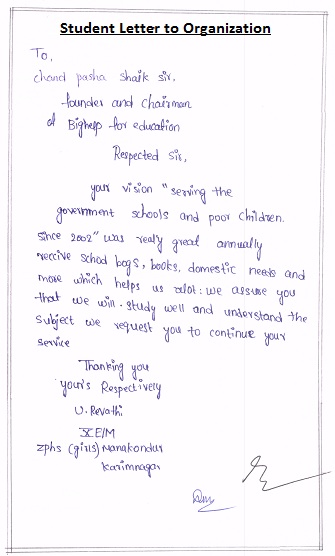 Student Letter to Organization
To,
chand pasha shaik sir.
founder and chairman
of Bighelp for education
Respected sir,
your vision "serving the
government schools and poor children.
since 2002" was really great annually
receive school bags, books, domestic needs and
more which helps us alot: we assure you
that we will. study well and understand the
subject we request you to continue your
service
Thanking you
your's Respectively
U. Revathi
X E/M
zphs (girls) Manakondur
Karimnagar